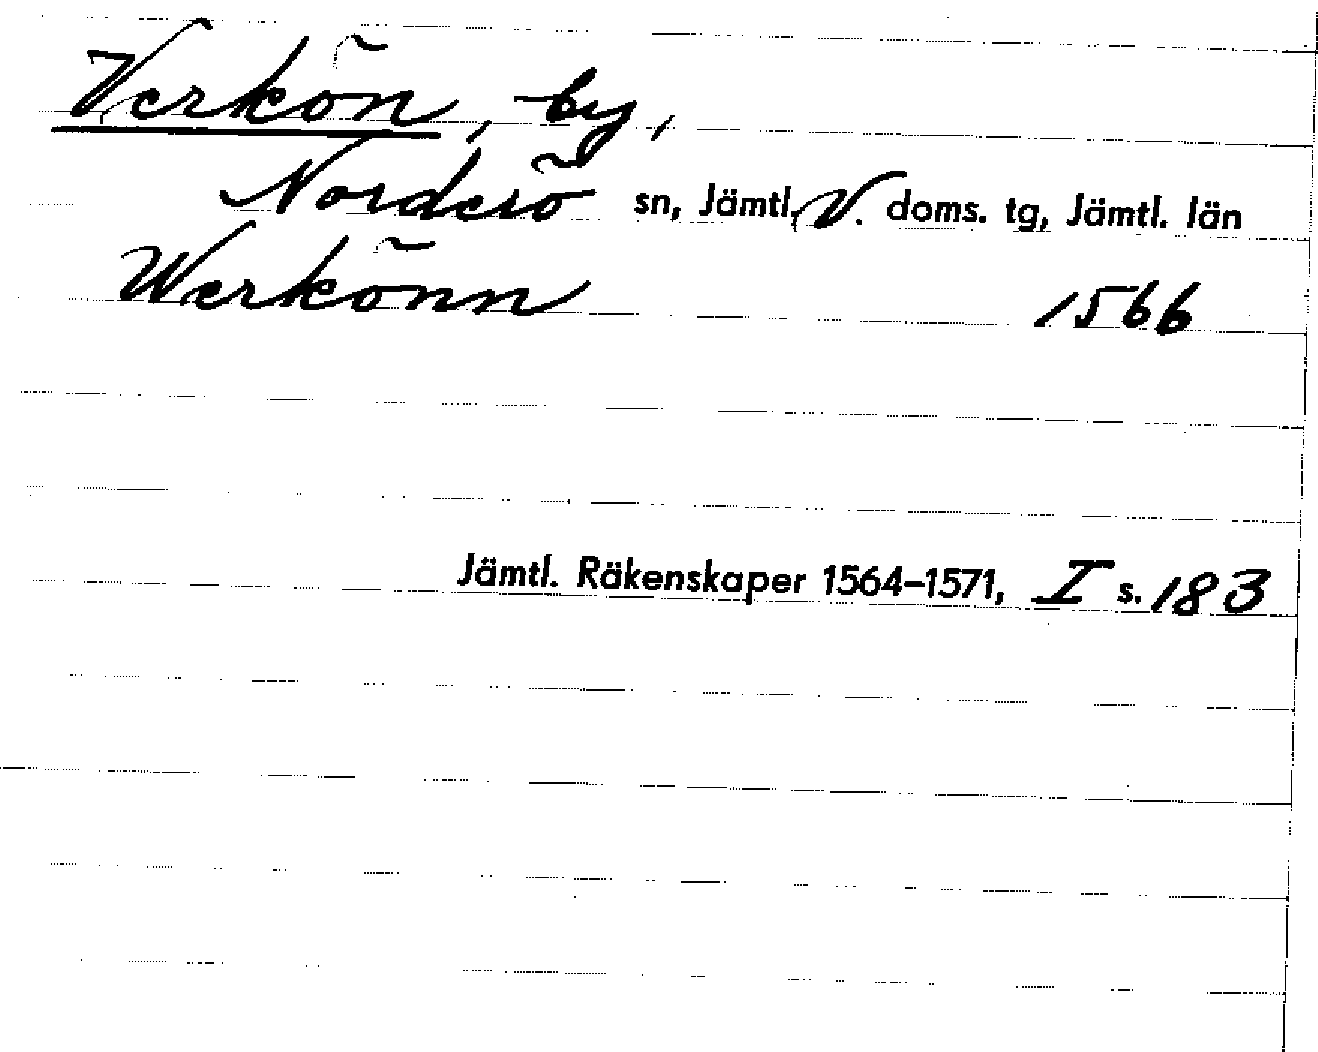 Verkön, by,
Norderö sn, Jämtl. V. doms. tg, Jämtl. län
Werkönn 1566
Jämtl. Räkenskaper 1564–1571, I s. 183